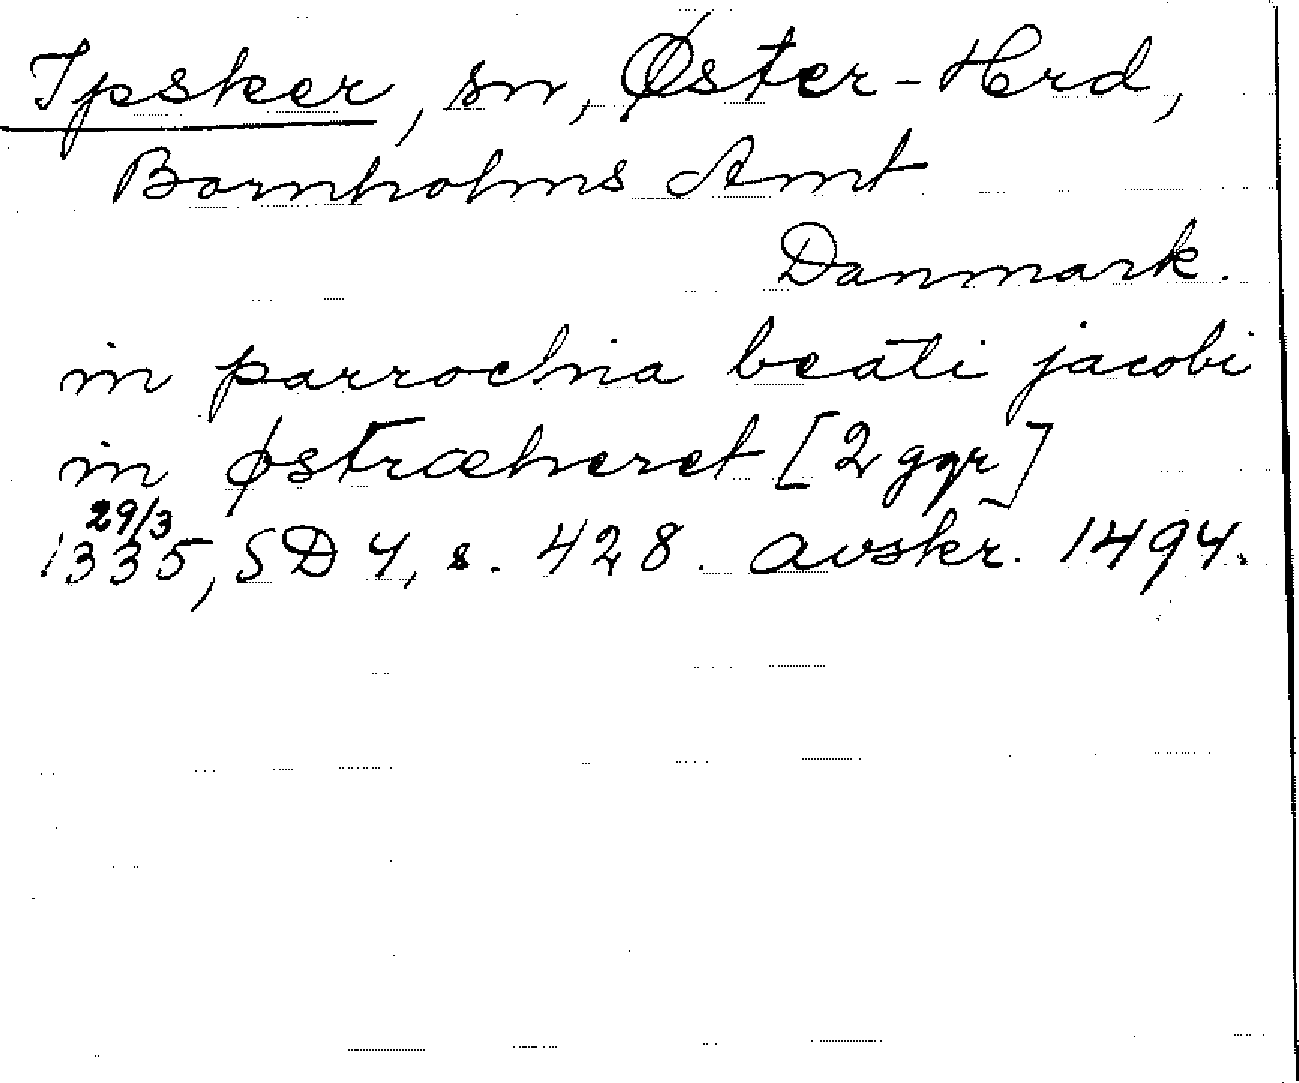 Ipsker, sn, Øster-Hrd,
Bornholms Amt
Danmark.
in parrochia beati jacobi
in østræheret [2 ggr]
29/3
1335, SD 4, s. 428. avskr. 1494.